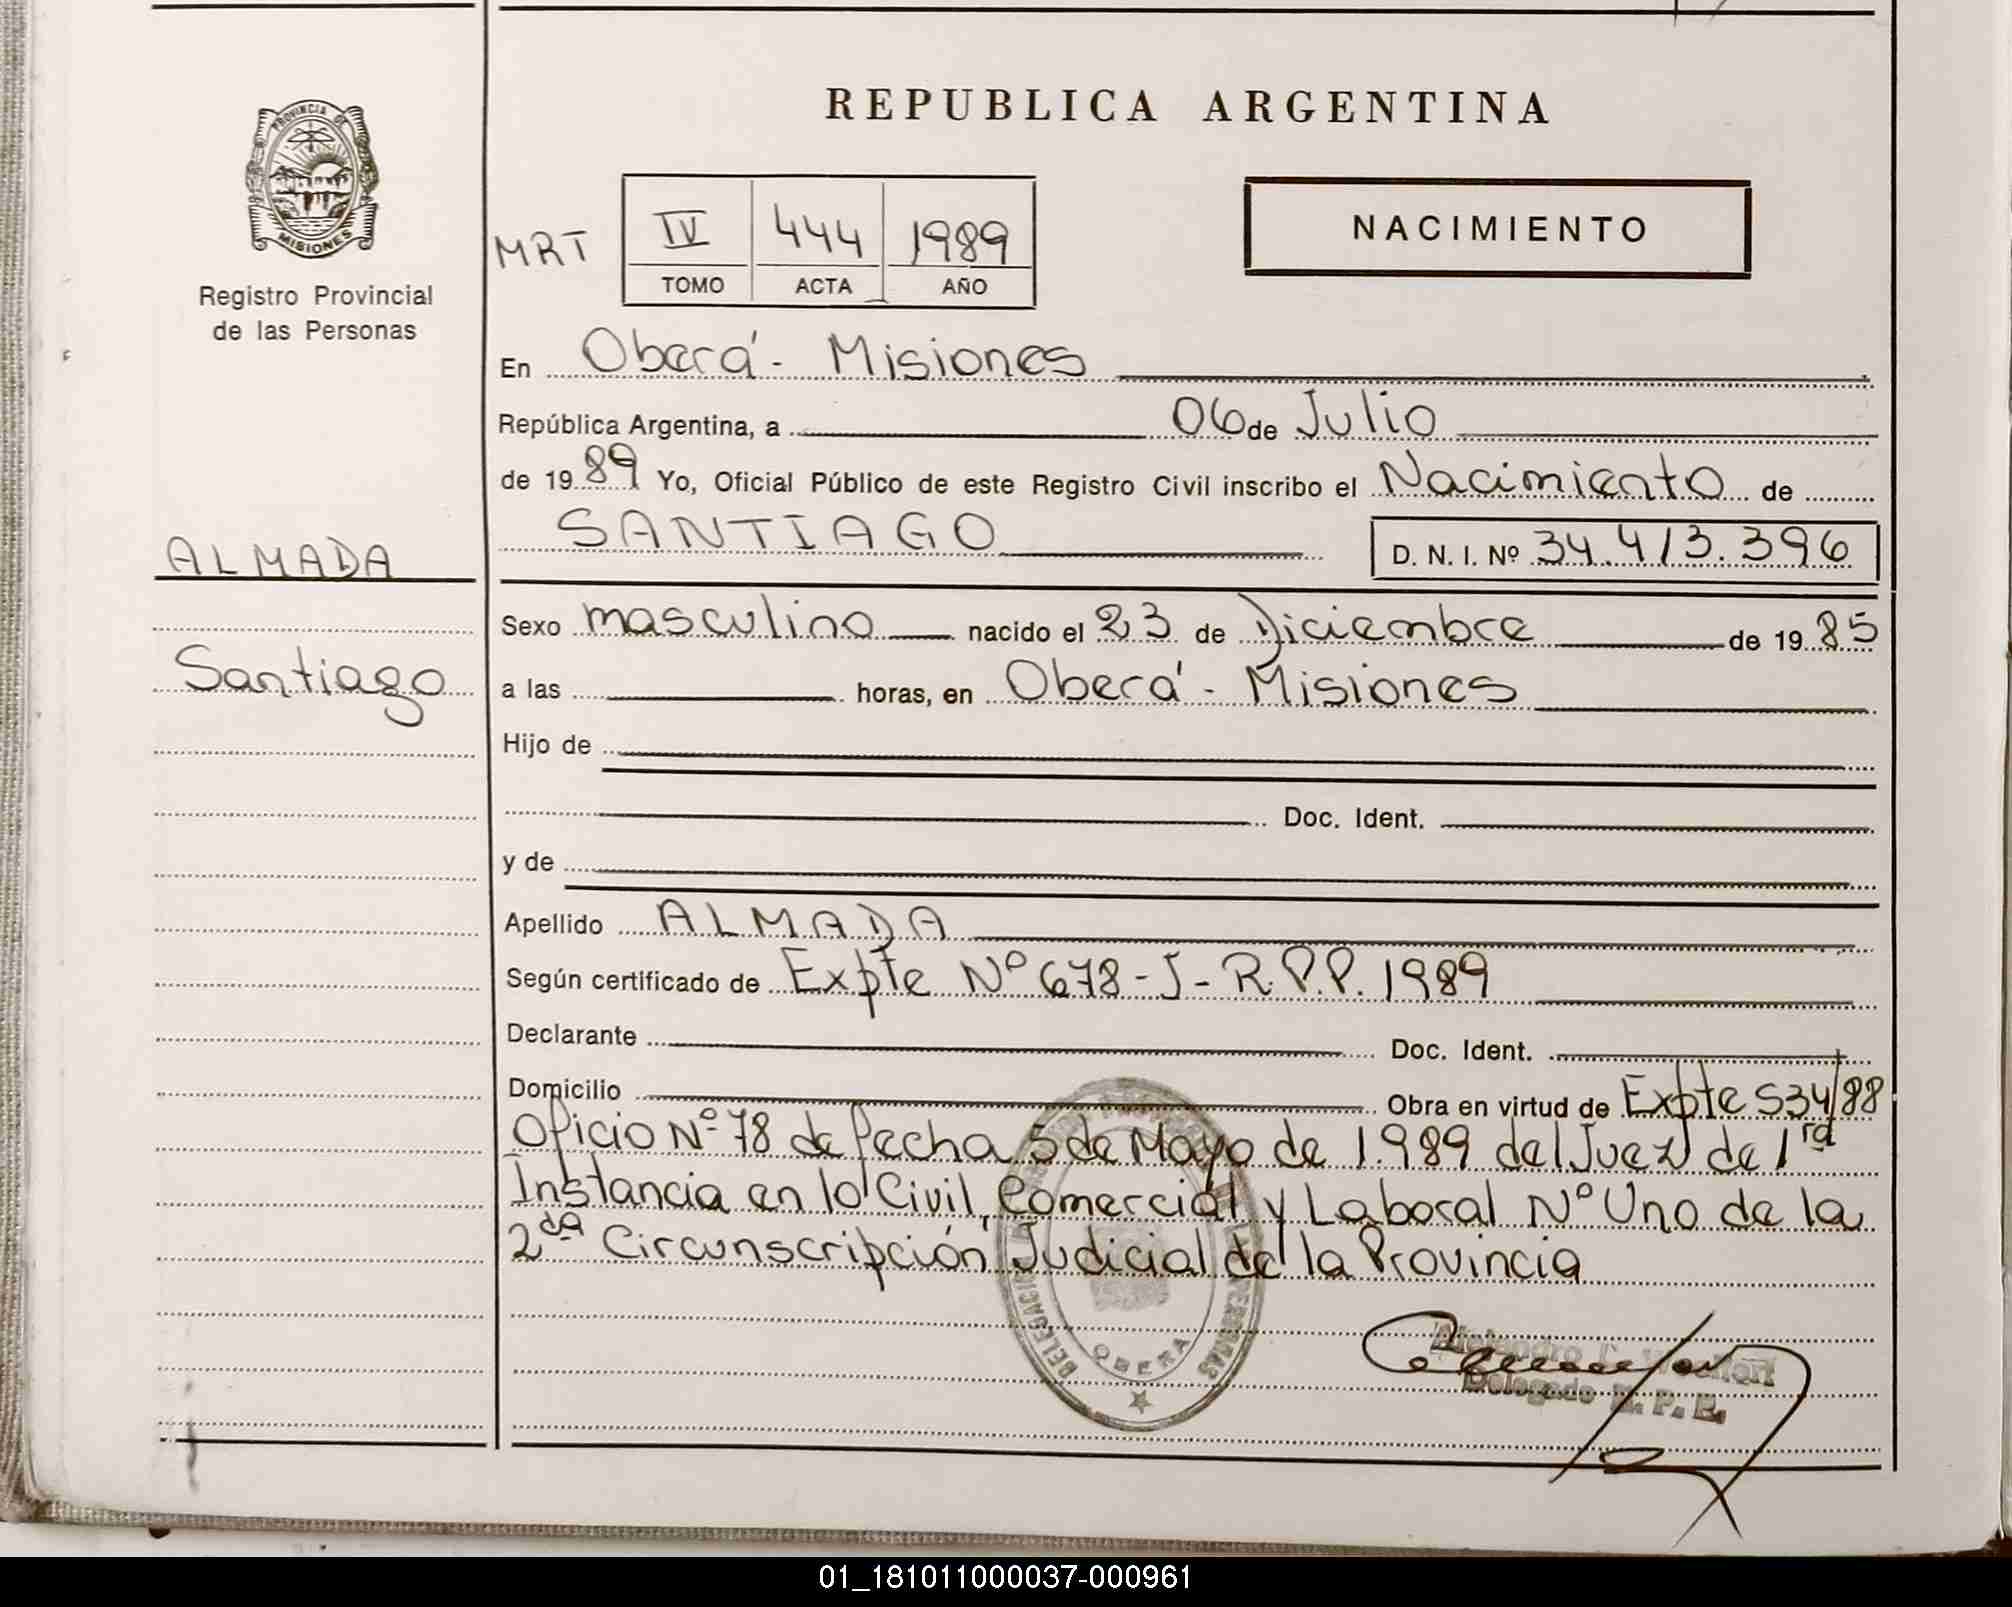 REPUBLICA ARGENTINA
PROVINCIA DE
MISIONES
Registro Provincial
de las Personas
NACIMIENTO
MRT IV 444 1989
TOMO ACTA AÑO
En Oberá - Misiones
República Argentina, a 06 de Julio
de 1989 Yo, Oficial Público de este Registro Civil inscribo el Nacimiento de
SANTIAGO D. N. I. Nº 34.413.396
ALMADA
Santiago
Sexo masculino nacido el 23 de Diciembre de 1985
a las horas, en Oberá - Misiones
Hijo de
Doc. Ident.
y de
Apellido ALMADA
Según certificado de Expte Nº 678-J-R.P.P. 1989
Declarante Doc. Ident.
Domicilio Obra en virtud de Expte 534/88
Oficio Nº 78 de fecha 5 de Mayo de 1.989 del Juez de 1ra
Instancia en lo Civil, Comercial y Laboral Nº Uno de la
2da Circunscripción Judicial de la Provincia
OBERA
Delegado R. P. P.
01_181011000037-000961